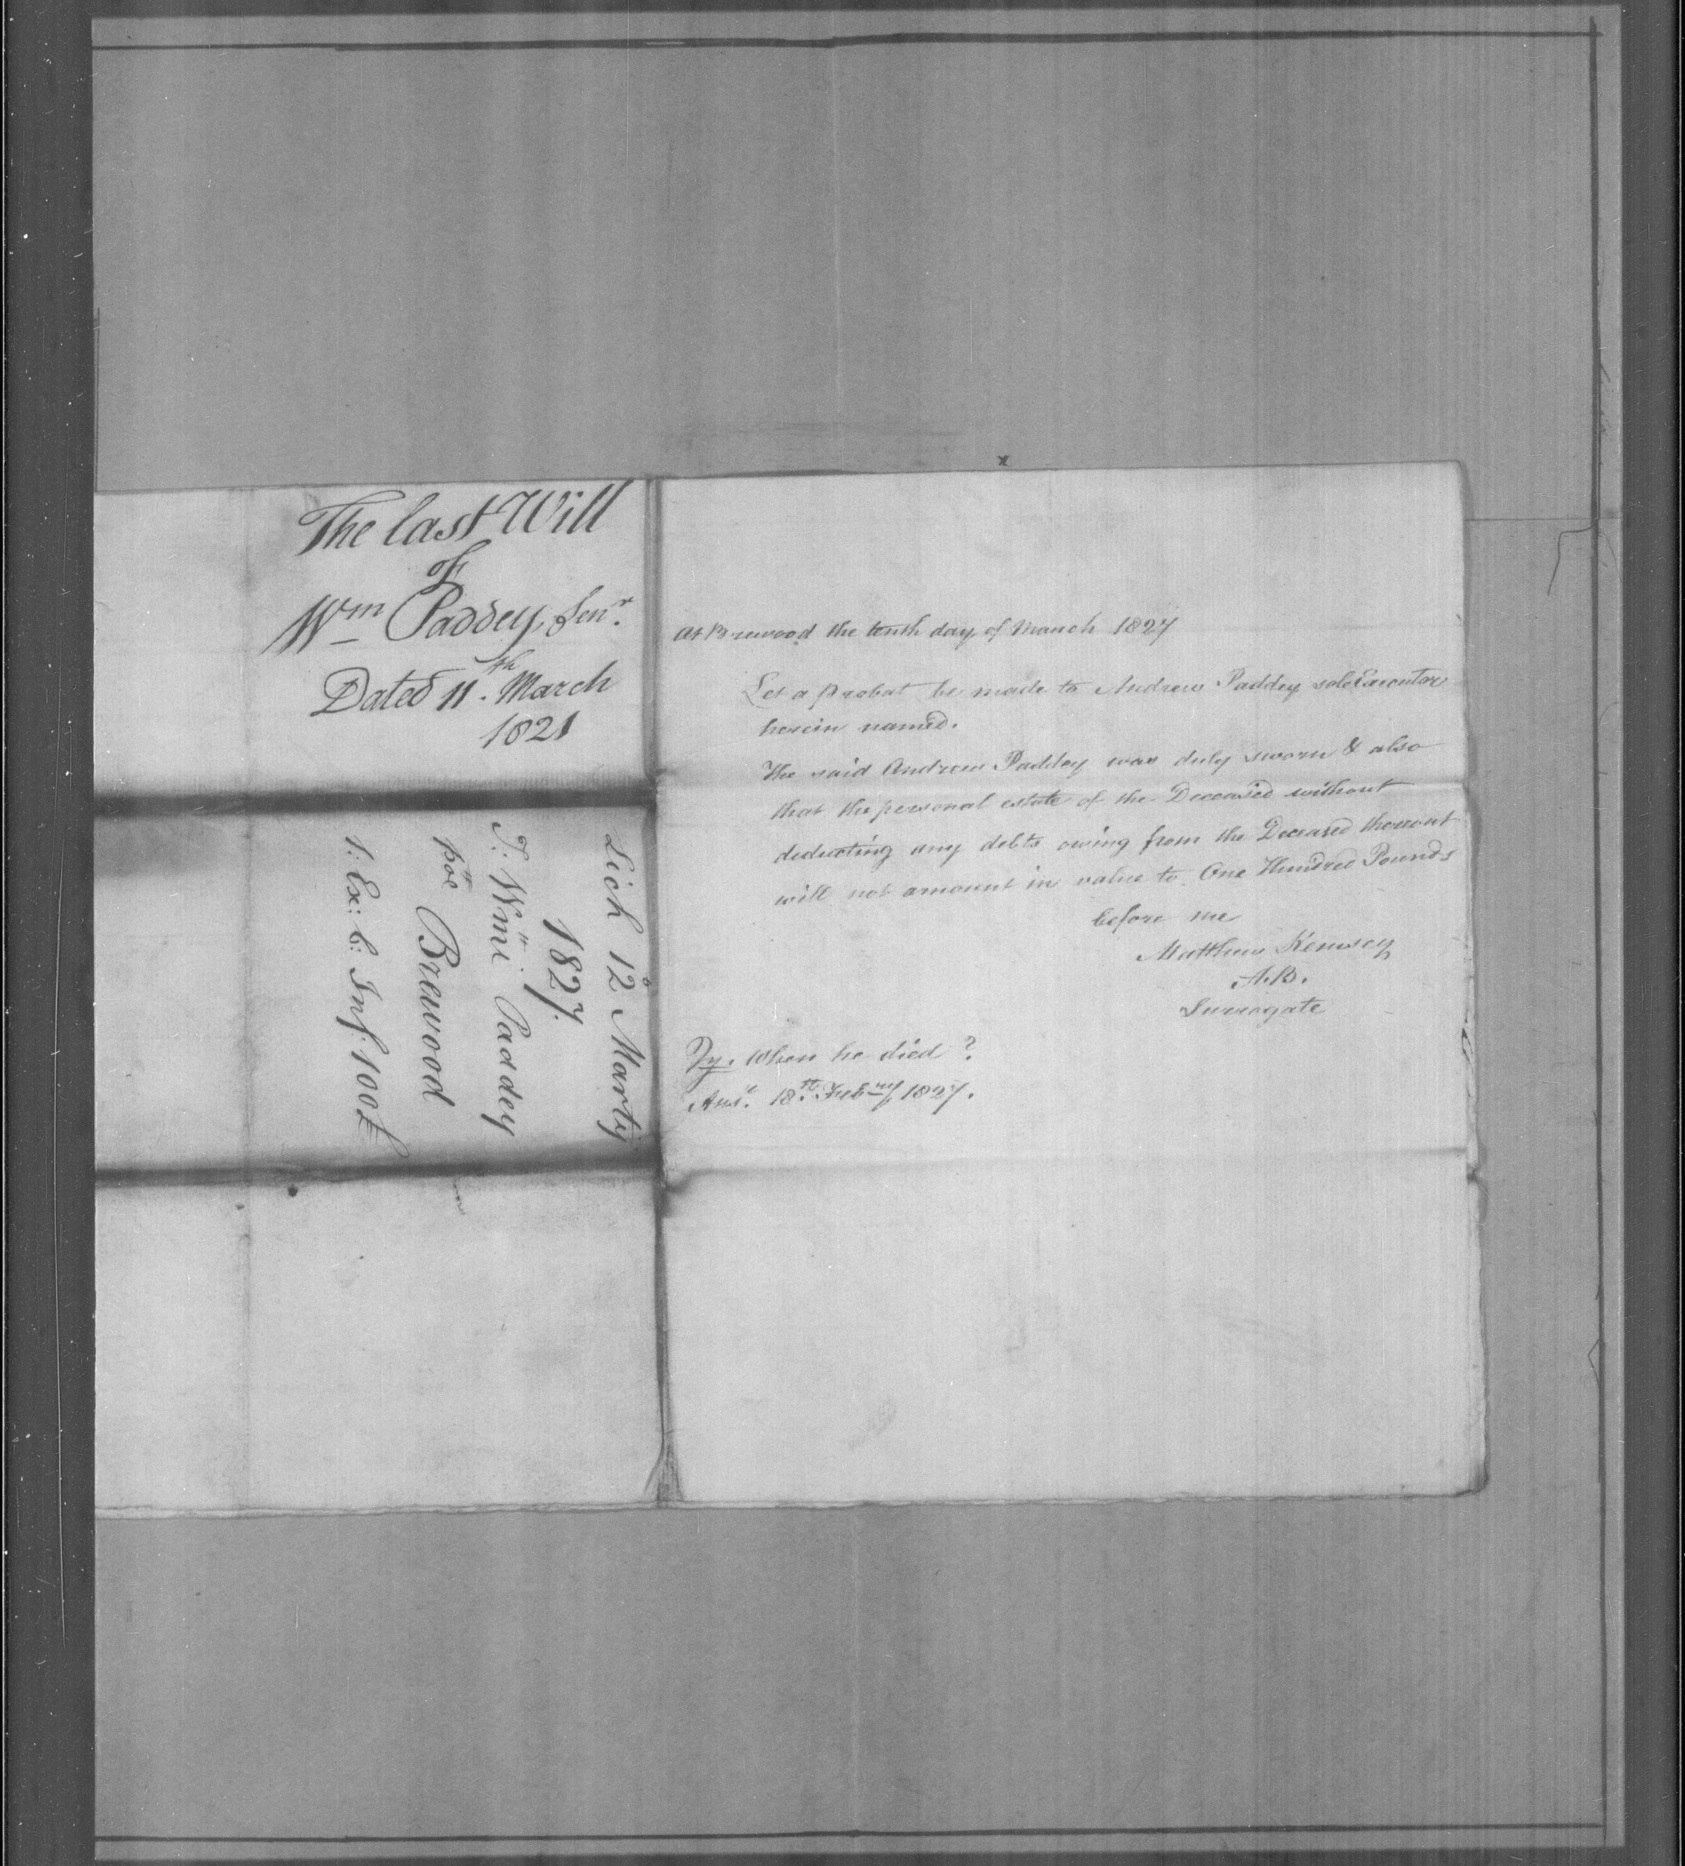 The last Will
of
Wm Paddey, Senr.
Dated 11th. March
1821
Lich 12o Martij
1827.
T: Wmi Paddey
poe Brewood
1: Ex: C: Inf: 100£
At Brewood the tenth day of March 1827
Let a Probat be made to Andrew Paddey sole Executor
herein named.
The said Andrew Paddey was duly sworn & also
that the personal estate of the Deceased without
deducting any debts owing from the Deceased thereout
will not amount in value to One Hundred Pounds
before me
Matthew Kemsey
A.B.
Surrogate
Qy. When he died?
Ansr. 18th. Febry 1827.